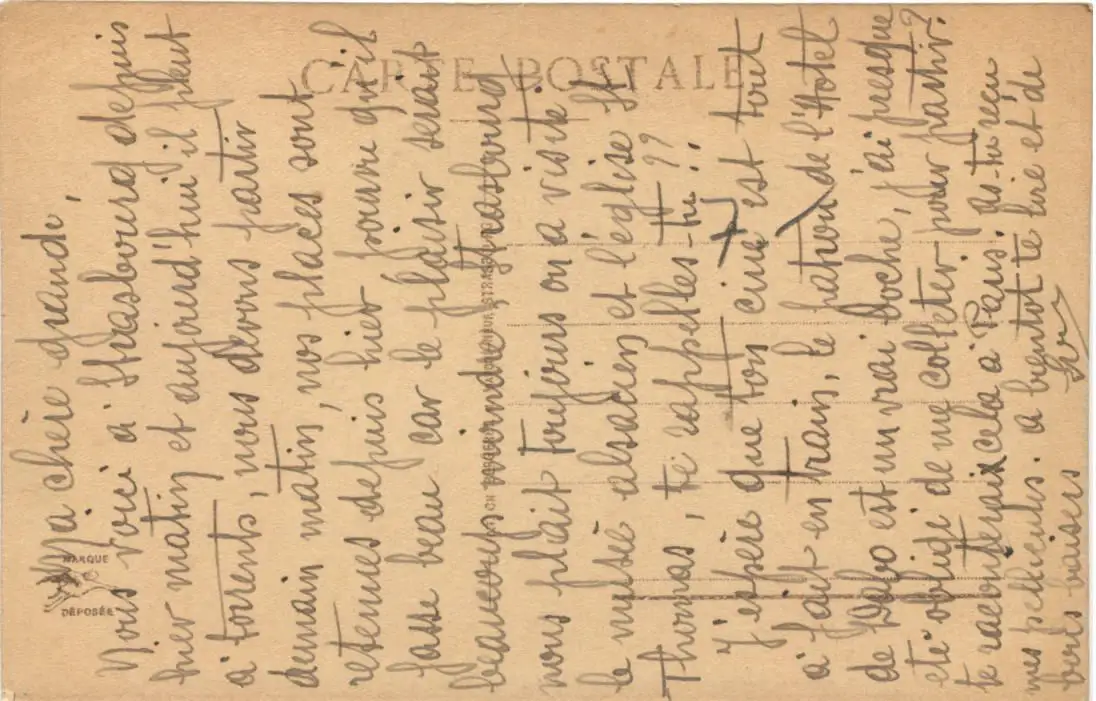 CARTE POSTALE
MARQUE
DÉPOSÉE
Ma chère grande,
Nous voici à Strasbourg depuis
hier matin et aujourd'hui il pleut
à torrents, nous devons partir
demain matin, nos places sont
retenues depuis hier pourvu qu'il
fasse beau car le plaisir serait
beaucoup moindre, Strasbourg
nous plaît toujours on a visité
le musée alsacien et l'église St
Thomas, te rappelles-tu??
J'espère que ton cine est tout
à fait en train, le patron de l'Hotel
de est un vrai boche, j'ai presque
été obligé de me colleter pour partir?
te raconterai cela à Paris. as-tu reçu
mes pellicules. a bientôt te lire et de
bons baisers